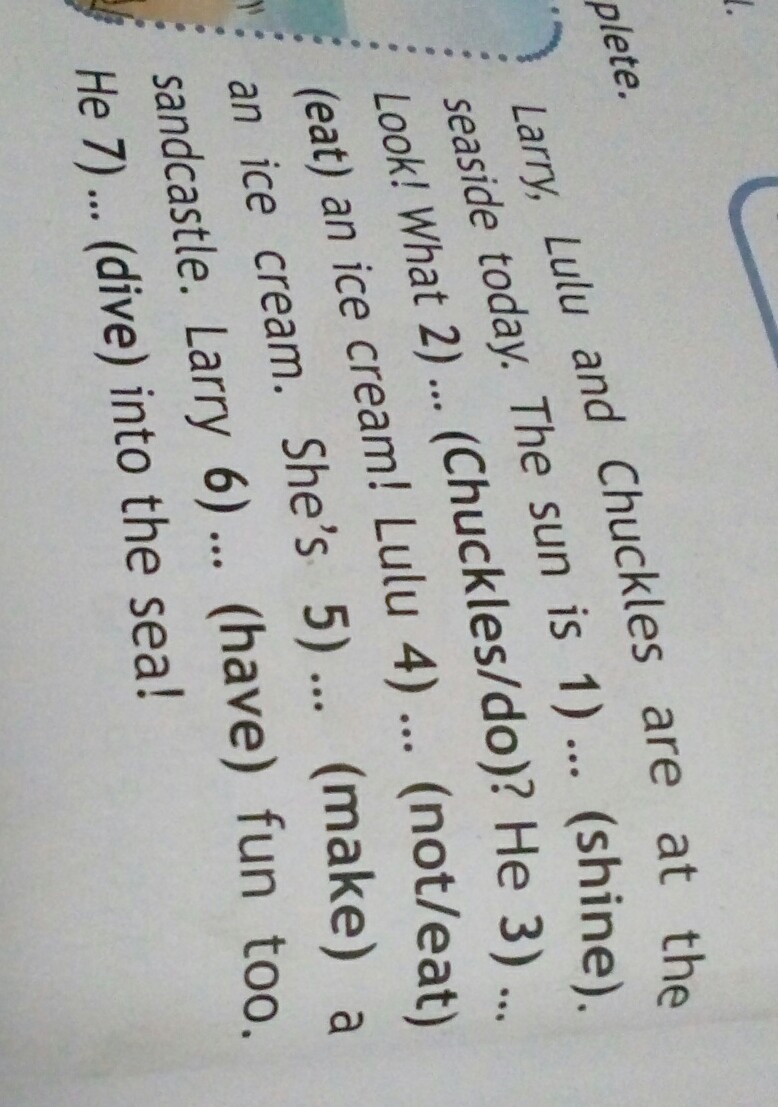 l.
plete.
Larry, Lulu and Chuckles are at the
seaside today. The sun is 1) ... (shine).
Look! What 2) ... (Chuckles/do)? He 3) ...
(eat) an ice cream! Lulu 4) ... (not/eat)
an ice cream. She's 5) ... (make) a
sandcastle. Larry 6) ... (have) fun too.
He 7) ... (dive) into the sea!